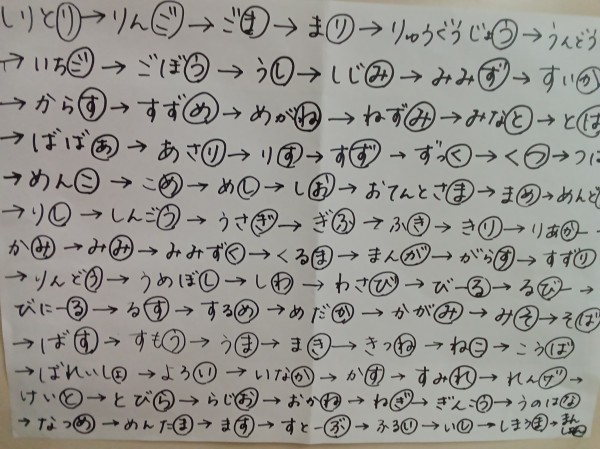 しりとり→りんご→ごま→まり→りゅうぐうじょう→うんどう
→いちご→ごぼう→うし→しじみ→みみず→すいか
→からす→すずめ→めがね→ねずみ→みなと→とば
→ばばあ→あさり→りす→すず→ずっく→くつ→つ
→めんこ→こめ→めし→しお→おてんとさま→まめ→めんど
→りし→しんごう→うさぎ→ぎふ→ふき→きり→りあかー
かみ→みみ→みみずく→くるま→まんが→がらす→すずり
→りんどう→うめぼし→しわ→わさび→びーる→るびー→
びにーる→るす→するめ→めだか→かがみ→みそ→そば
→ばす→すもう→うま→まき→きつね→ねこ→こうば
→ばれいしょ→よろい→いなか→かす→すみれ→れんげ→
けいと→とびら→らじお→おかね→ねぎ→ぎんこう→うのはな
→なつめ→めんたま→ます→すとーぶ→ふるい→いし→しまうま→